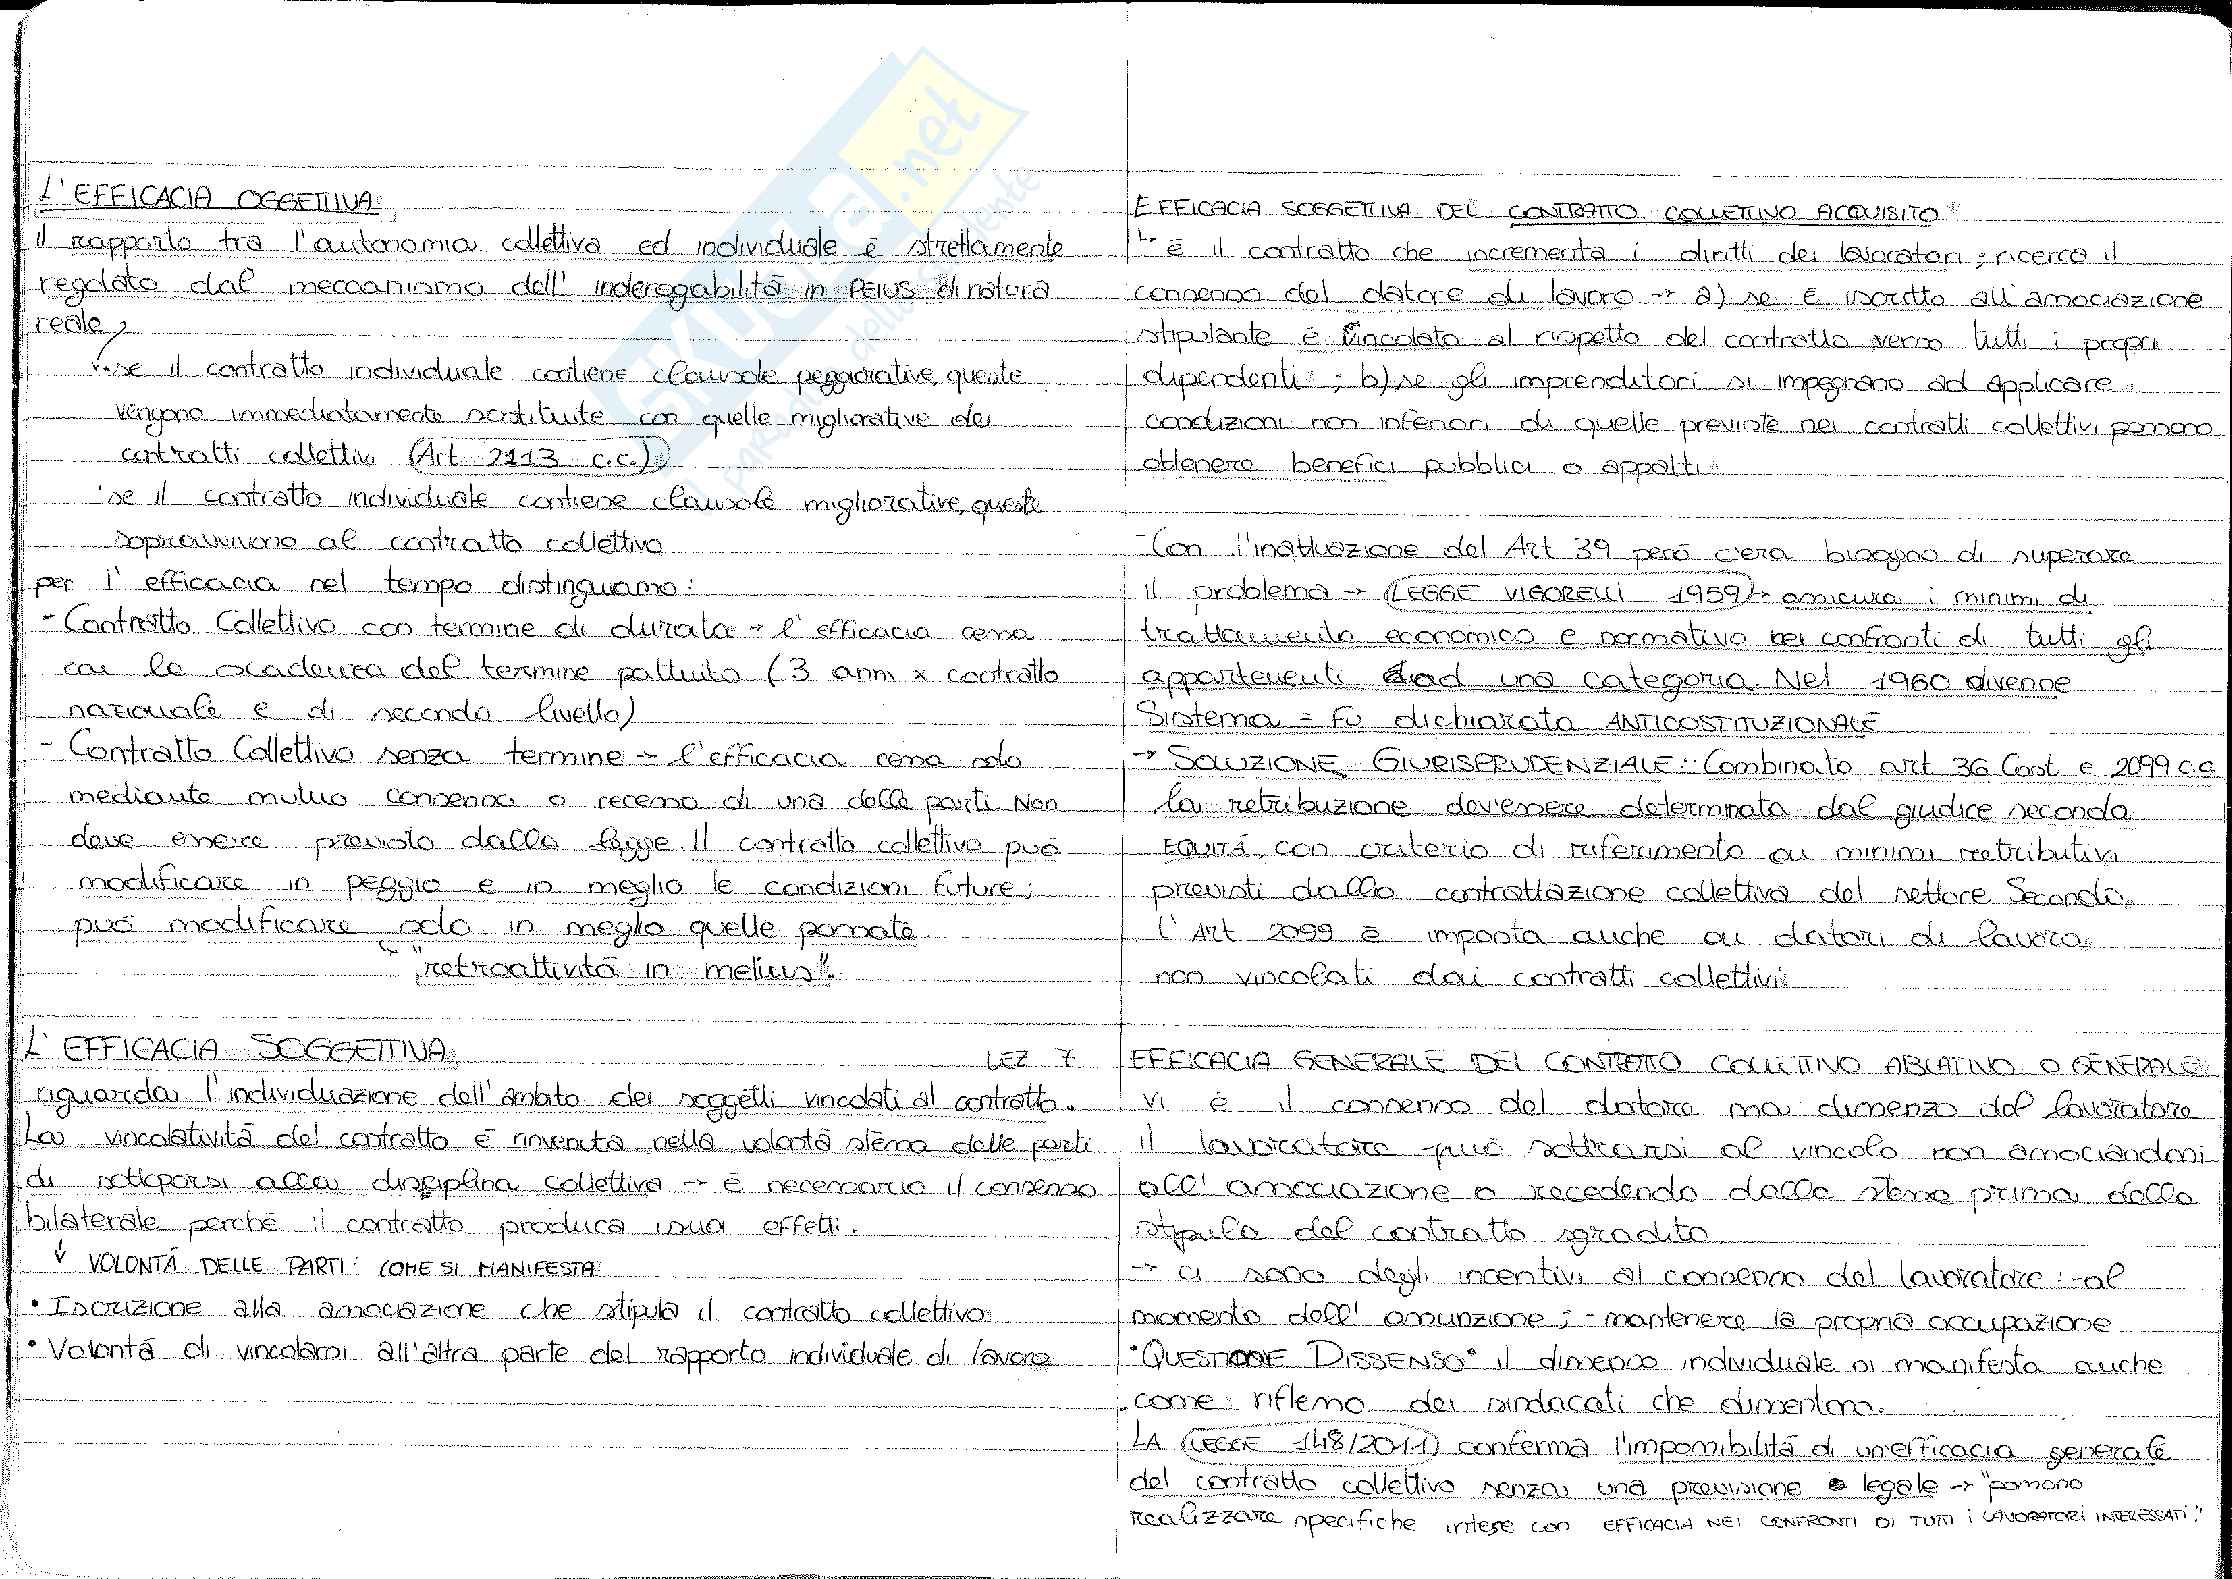 L'EFFICACIA OGGETTIVA:
il rapporto tra l'autonomia collettiva ed individuale è strettamente
regolato dal meccanismo dell' inderogabilità in PEIUS di natura
reale,
·se il contratto individuale contiene clausole peggiorative, queste
vengono immediatamente sostituite con quelle migliorative dei
contratti collettivi (Art 2113 c.c.)
·se il contratto individuale contiene clausole migliorative, queste
sopravvivono al contratto collettivo
per l'efficacia nel tempo distinguiamo:
- Contratto Collettivo con termine di durata → l'efficacia cessa
con la scadenza del termine pattuito (3 anni x contratto
nazionale e di secondo livello)
- Contratto Collettivo senza termine → l'efficacia cessa solo
mediante mutuo consenso o recesso di una delle parti Non
deve essere previsto dalla legge. Il contratto collettivo può
modificare in peggio e in meglio le condizioni future;
può modificare solo in meglio quelle passate
↳ "retroattività in melius".
L'EFFICACIA SOGGETTIVA: LEZ 7
riguarda l'individuazione dell'ambito dei soggetti vincolati al contratto.
La vincolatività del contratto è rinvenuta nella volontà stessa delle parti
di sottoporsi alla disciplina collettiva → è necessario il consenso
bilaterale perché il contratto produca i suoi effetti.
↓ VOLONTÀ DELLE PARTI: COME SI MANIFESTA:
• Iscrizione alla associazione che stipula il contratto collettivo
• Volontà di vincolarsi all'altra parte del rapporto individuale di lavoro
EFFICACIA SOGGETTIVA DEL CONTRATTO COLLETTIVO ACQUISITO:
↳ è il contratto che incrementa i diritti dei lavoratori; ricerca il
consenso del datore di lavoro → a) se è iscritto all'associazione
stipulante è vincolato al rispetto del contratto verso tutti i propri
dipendenti; b) se gli imprenditori si impegnano ad applicare
condizioni non inferiori di quelle previste nei contratti collettivi possono
ottenere benefici pubblici o appalti.
-Con l'inattuazione del Art 39 però c'era bisogno di superare
il problema → (LEGGE VIGORELLI 1959) → assicura i minimi di
trattamento economico e normativo nei confronti di tutti gli
appartenenti ad una categoria. Nel 1960 divenne
Sistema = Fu dichiarata ANTICOSTITUZIONALE
→ SOLUZIONE GIURISPRUDENZIALE: Combinato art 36 Cost e 2099 c.c
la retribuzione dev'essere determinata dal giudice secondo
EQUITÀ, con criterio di riferimento ai minimi retributivi
previsti dalla contrattazione collettiva del settore. Secondo
l'Art 2099 è imposta anche ai datori di lavoro
non vincolati dai contratti collettivi
EFFICACIA GENERALE DEL CONTRATTO COLLETTIVO ABLATIVO O GENERALE:
vi è il consenso del datore ma dissenso del lavoratore
il lavoratore può sottrarsi al vincolo non associandosi
all'associazione o recedendo dalla stessa prima della
stipula del contratto sgradito
→ ci sono degli incentivi al consenso del lavoratore: -al
momento dell'assunzione; -mantenere la propria occupazione
"QUESTIONE DISSENSO" il dissenso individuale si manifesta anche
come riflesso dei sindacati che dissentono.
LA (LEGGE 148/2011) conferma l'impossibilità di un'efficacia generale
del contratto collettivo senza una previsione legale → "possono
realizzare specifiche intese con EFFICACIA NEI CONFRONTI DI TUTTI i LAVORATORI INTERESSATI."